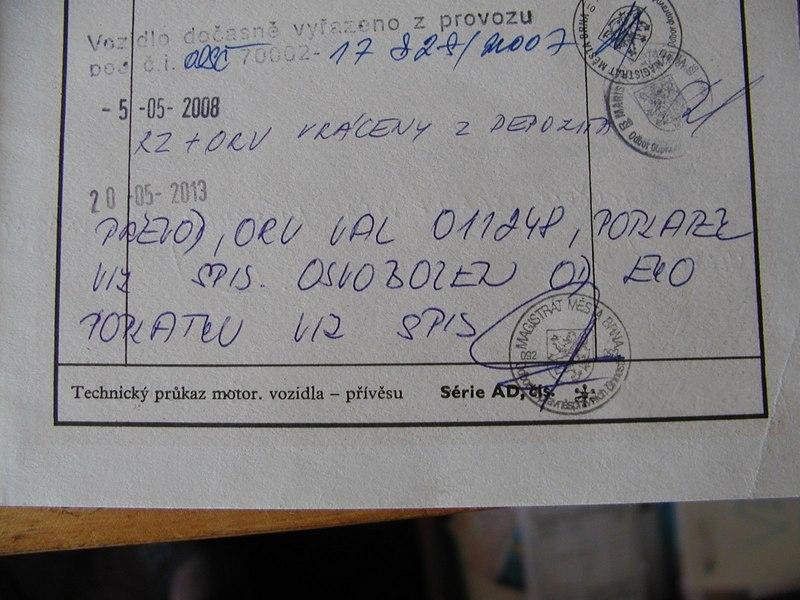 Vozidlo dočasně vyřazeno z provozu
pod č.j. ODSČ 70002- 17 828/2007
- 5 -05- 2008
RZ + ORV VRÁCENY Z DEPOZITA
20 -05- 2013
PŘEVOD, ORV UAL 011248, POPLATEK
VIZ SPIS. OSVOBOZEN OD EKO
POPLATKU VIZ SPIS
MAGISTRÁT MĚSTA BRNA
092
Technický průkaz motor. vozidla – přívěsu Série AD, čís.